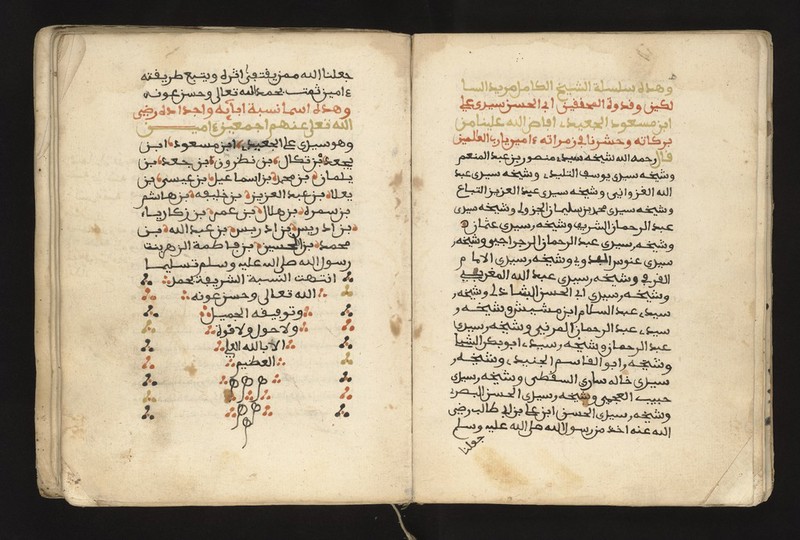 وهذه سلسلة الشيخ الكامل مربد السا
لكين وقدوة المحققين ابي الحسن سيدي علي
ابن مسعود الجعيدي افاض الله علينا من
بركاته وحشرنا في زمراته ءامين يارب العالمين
قال رحمه الله شيخه سيدي منصور بن عبد المنعم
وشيخه سيدي يوسف التليدي وشيخه سيدي عبد
الله الغزواني وشيخه سيدي عبد العزيز التباع
وشيخه سيدي محمد بن سليمان الجزولي وشيخه سيدي
عبد الرحمان الشريف وشيخه سيدي عثمان
وشيخه سيدي عبد الرحمان الرجراجي وشيخه
سيدي عنوس البدوي وشيخه سيدي الامام
القرفي وشيخه سيدي عبد الله المغربي
وشيخه سيدي ابي الحسن الشاذلي وشيخه
سيدي عبد السلام ابن مشيش وشيخه
سيدي عبد الرحمان المدني وشيخه سيدي
عبد الرحمان وشيخه سيدي ابو بكر الشبلي
وشيخه ابو القاسم الجنيدي وشيخه
سيدي خاله ساري السقطي وشيخه سيدي
حبيب العجمي وشيخه سيدي الحسن البصري
وشيخه سيدي الحسن ابن علي بن ابي طالب رضي
الله عنه اخذ من رسول الله صلى الله عليه وسلم
جعلنا
جعلنا الله ممن يقتفي اثره ويتبع طريقته
ءامين تمت بحمد الله تعالى وحسن عونه
وهذه اسما نسبة ابائه واجداده رضي
الله تعلى عنهم اجمعين ءامين
وهو سيدي علي الجعيدي ابن مسعود ابن
يجعد بن تكال بن نظرون ابن جعد بن
يلمان بن محمد بن اسماعيل بن عيسى بن
يعلا بن عبد العزيز بن خليفه بن هاشم
بن سمرة بن هلال بن عمر بن زكرياء
بن ادريس بن ادريس بن عبد الله بن
محمد بن الحسين بن فاطمة الزهرة بنت
رسول الله صلى الله عليه وسلم تسليما
انتهت النسبة الشريفة بحمد
الله تعالى وحسن عونه
وتوفيقه الجميل
ولا حول ولا قوة
الا بالله العلي
العظيم